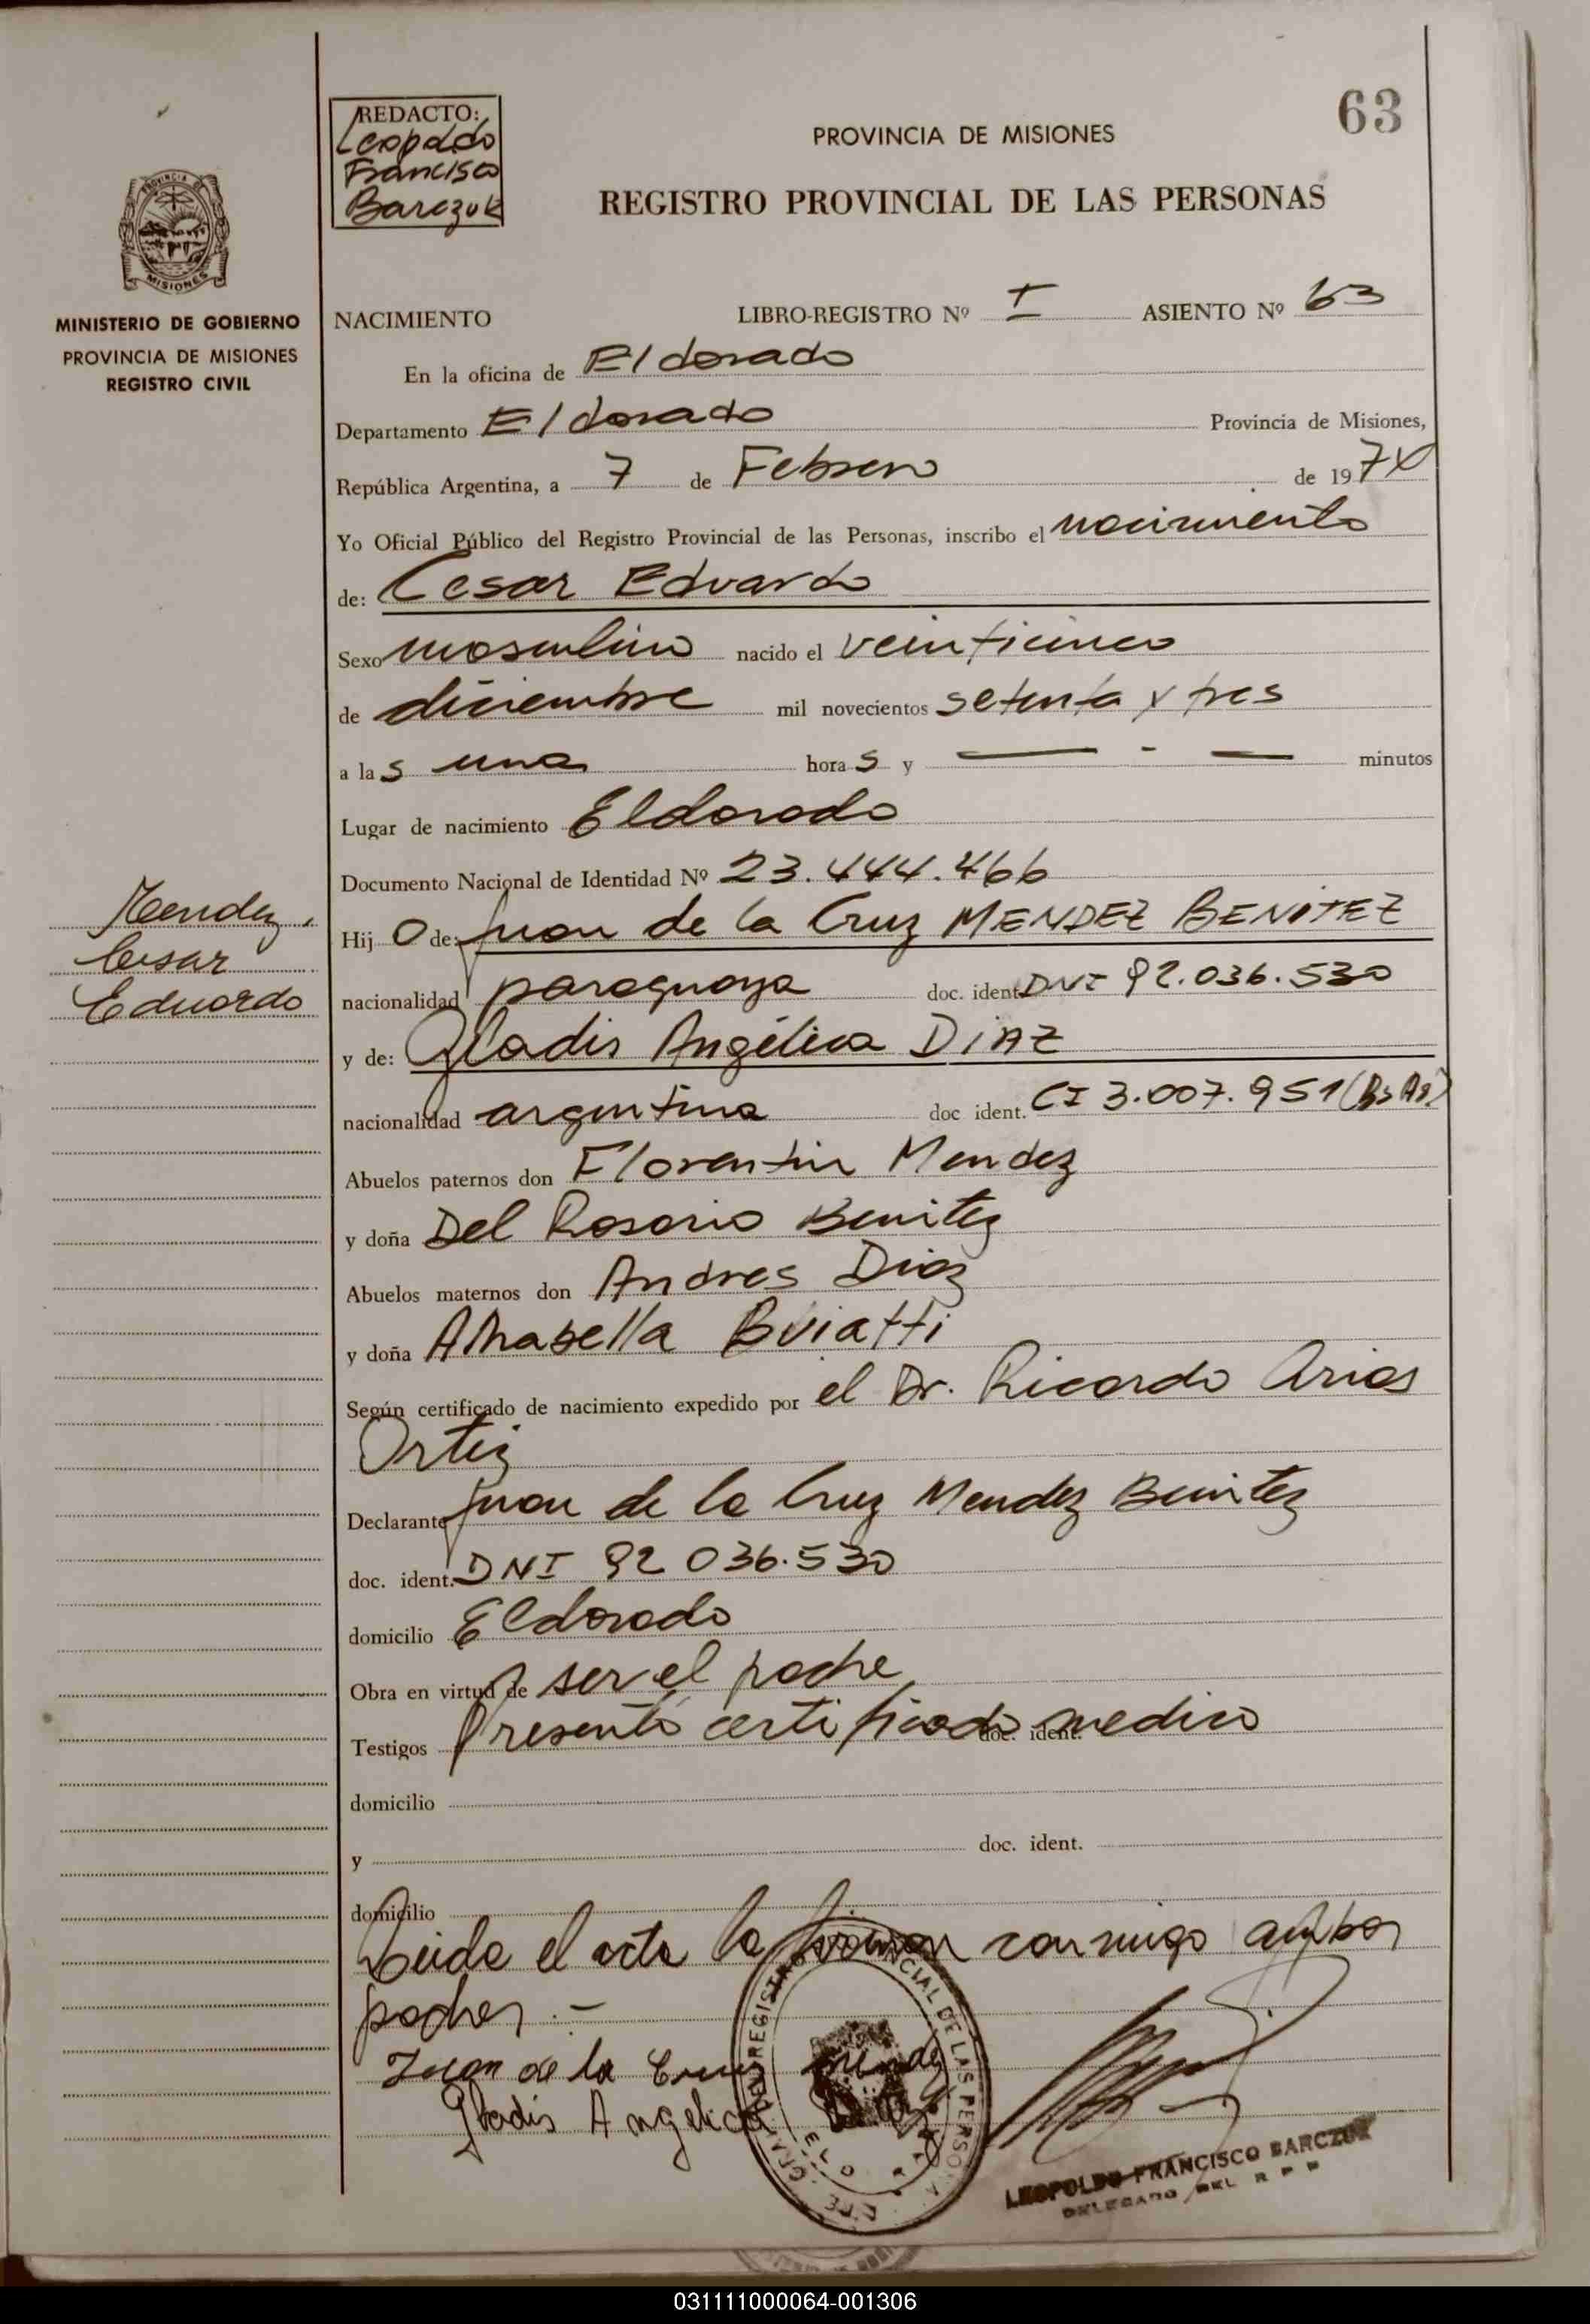 63
REDACTO:
Leopoldo
Francisco
Barczuk
PROVINCIA DE MISIONES
REGISTRO PROVINCIAL DE LAS PERSONAS
PROVINCIA DE
MISIONES
MINISTERIO DE GOBIERNO
PROVINCIA DE MISIONES
REGISTRO CIVIL
NACIMIENTO LIBRO-REGISTRO Nº I ASIENTO Nº 63
En la oficina de Eldorado
Departamento Eldorado Provincia de Misiones,
República Argentina, a 7 de Febrero de 1974
Yo Oficial Público del Registro Provincial de las Personas, inscribo el nacimiento
de: Cesar Eduardo
Sexo masculino nacido el veinticinco
de diciembre mil novecientos setenta y tres
a las una horas y — - — minutos
Lugar de nacimiento Eldorado
Documento Nacional de Identidad Nº 23.444.466
Mendez,
Cesar
Eduardo
Hijo de: Juan de la Cruz MENDEZ BENITEZ
nacionalidad paraguaya doc. ident. DNI 92.036.530
y de: Gladis Angélica DIAZ
nacionalidad argentina doc ident. CI 3.007.951 (Bs As)
Abuelos paternos don Florentin Mendez
y doña Del Rosario Benitez
Abuelos maternos don Andres Diaz
y doña Buiatti
Según certificado de nacimiento expedido por el Dr. Ricardo Arias
Ortiz
Declarante Juan de la Cruz Mendez Benitez
doc. ident. DNI 92 036.530
domicilio Eldorado
Obra en virtud de ser el padre
Testigos Presentó certificado doc. ident. medico
domicilio
y doc. ident.
domicilio
Leida el acta la firman conmigo ambos
padres.-
Juan de la Cruz Mendez
Gladis Angelica Diaz
REGISTRO PROVINCIAL DE LAS PERSONAS
LEOPOLDO FRANCISCO BARCZUK
DELEGADO DEL R P P
031111000064-001306